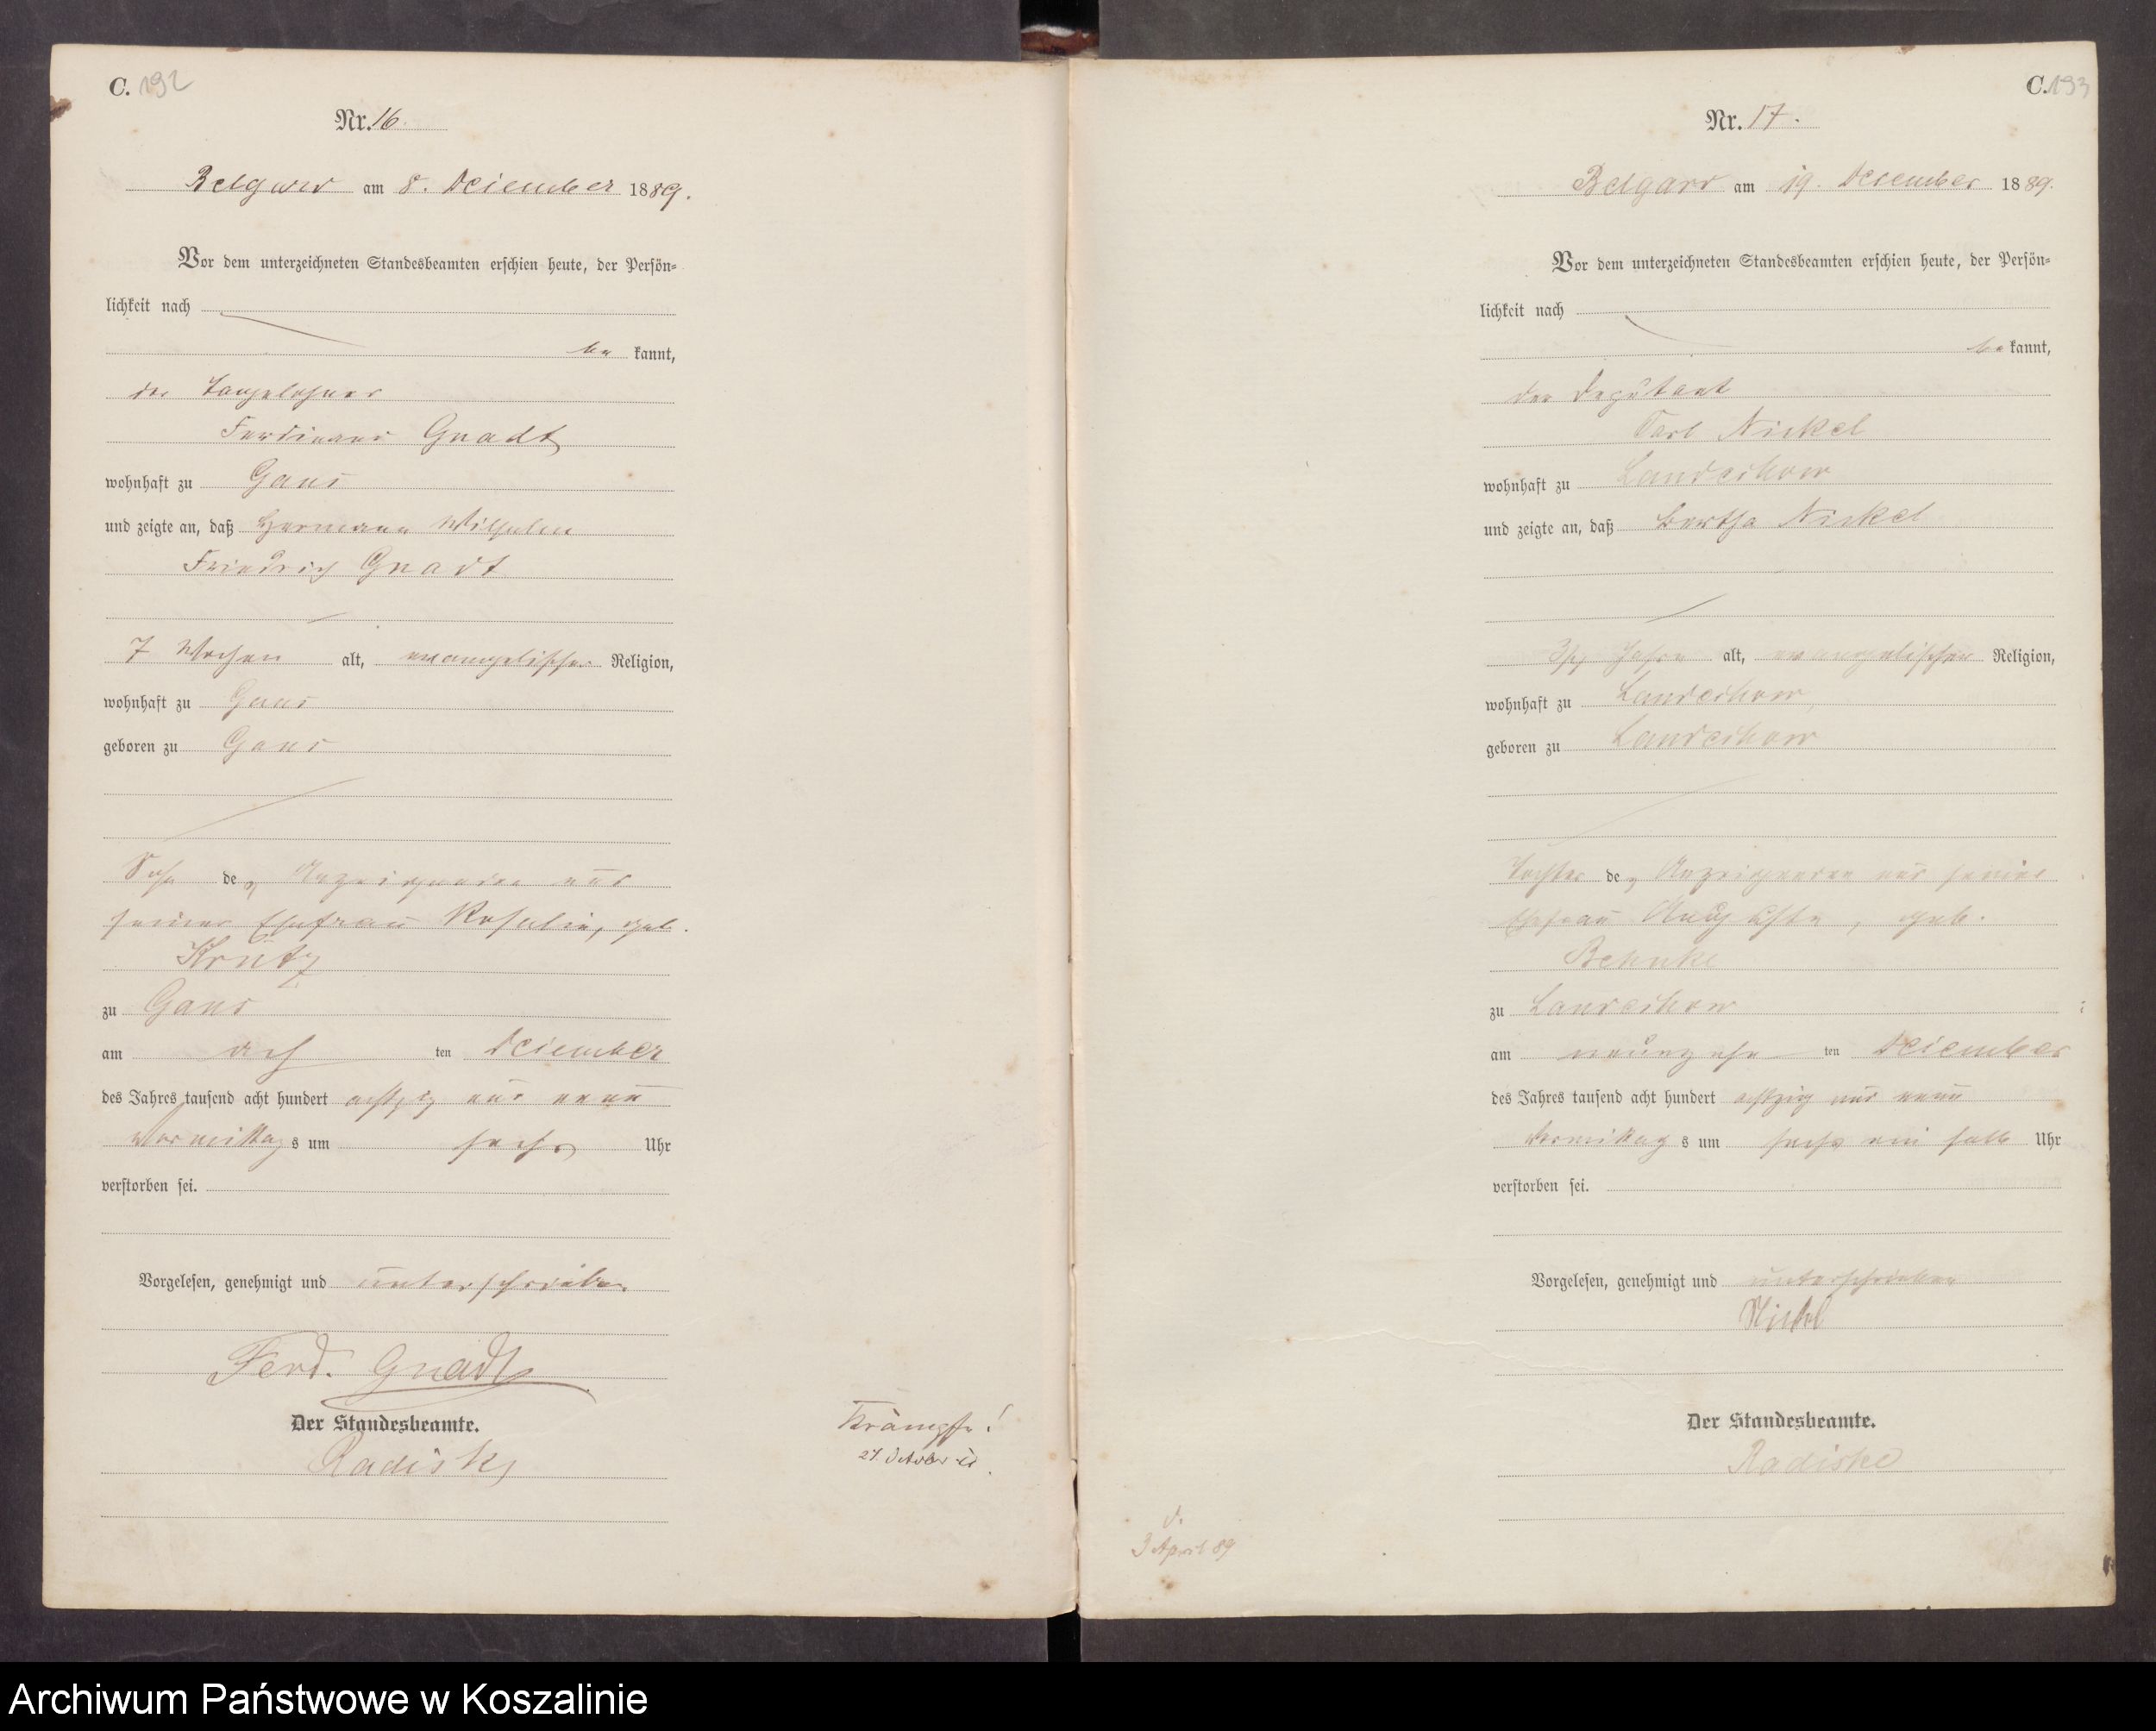 C. 192
Nr. 16.
Belgard am 8. Dezember 1889.
Vor dem unterzeichneten Standesbeamten erschien heute, der Persön-
lichkeit nach
be kannt,
der Tagelöhner
Ferdinand Gnadt
wohnhaft zu Gans
und zeigte an, daß Hermann Wilhelm
Friedrich Gnadt
7 Wochen alt, evangelischer Religion,
wohnhaft zu Gans
geboren zu Gans
Sohn des Anzeigenden und
seiner Ehefrau Rosalie, geb.
Krütz
zu Gans
am ach ten Dezember
des Jahres tausend acht hundert achtzig und neun
Vormittags um sechs Uhr
verstorben sei.
Vorgelesen, genehmigt und unterschrieben
Ferd. Gnadt
Der Standesbeamte.
Radiske
Krämpfe!
C. 193
Nr. 17.
Belgard am 19. Dezember 1889.
Vor dem unterzeichneten Standesbeamten erschien heute, der Persön-
lichkeit nach
be kannt,
der Deputant
Carl Nickel
wohnhaft zu Landechow
und zeigte an, daß Bertha Nickel
Jahre alt, evangelischer Religion,
wohnhaft zu Landechow,
geboren zu Landechow
Tochter des Anzeigenden und seiner
Ehefrau Auguste, geb.
Behnke
zu Landechow
am neunzehn ten Dezember
des Jahres tausend acht hundert achtzig und neun
Vormittags um sechs ein halb Uhr
verstorben sei.
Vorgelesen, genehmigt und unterschrieben
Nickel
Der Standesbeamte.
Radiske
3 April 89
Archiwum Państwowe w Koszalinie